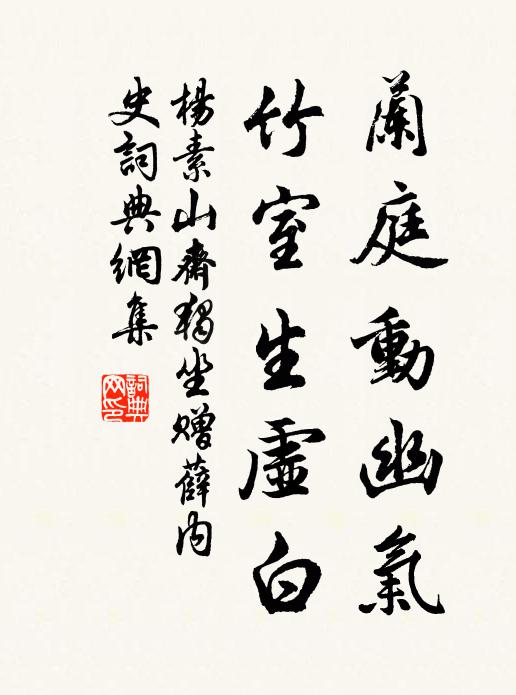 蘭庭動幽氣
竹室生虛白
楊素山齋獨坐贈薛內
史詞典網集
詞典
网印